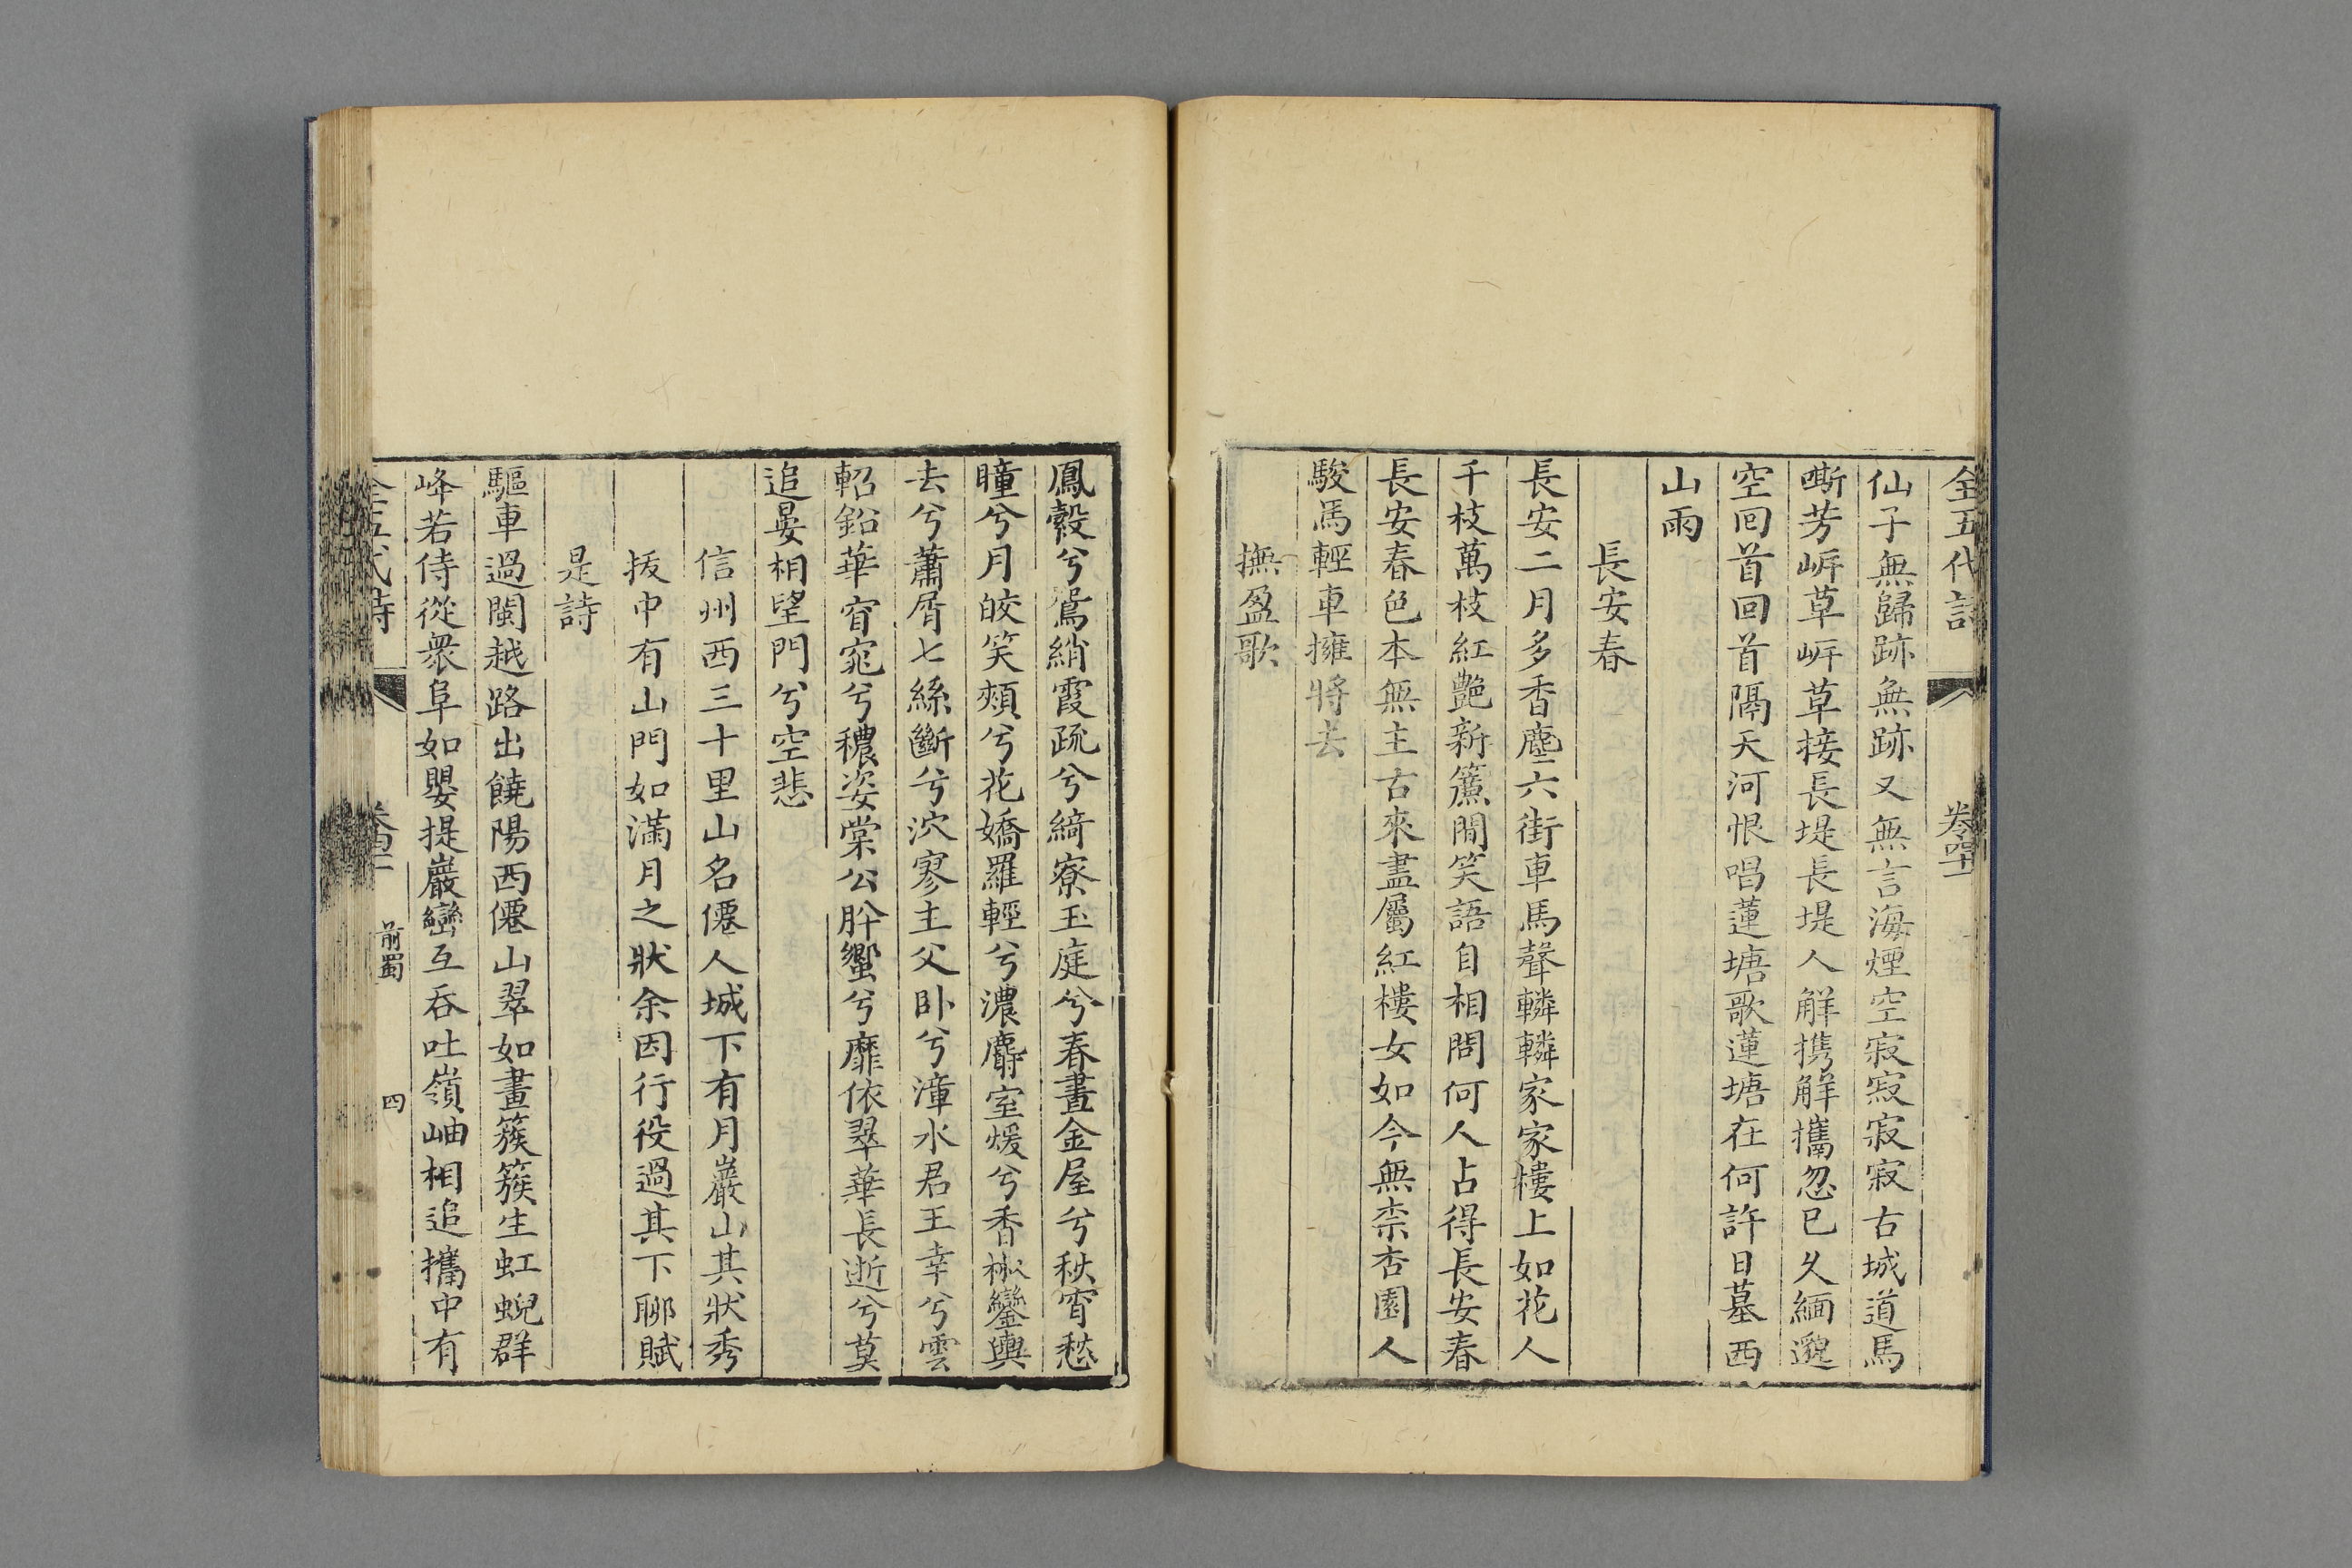 全五代詩 卷四十一
仙子無歸跡無跡又無言海煙空寂寂寂寂古城道馬
嘶芳岍草岍草接長堤長堤人解携解攜忽已久緬邈
空回首回首隔天河恨唱蓮塘歌蓮塘在何許日墓西
山雨
長安春
長安二月多香塵六街車馬聲轔轔家家樓上如花人
千枝萬枝紅艷新簾間笑語自相問何人占得長安春
長安春色本無主古來盡屬紅樓女如今無柰杏園人
駿馬輕車擁將去
撫盈歌
鳳縠兮鴛綃霞疏兮綺寮玉庭兮春晝金屋兮秋宵愁
瞳兮月皎笑頰兮花嬌羅輕兮濃麝室煖兮香椒鑾輿
去兮蕭屑七絲斷兮泬寥主父卧兮漳水君王幸兮雲
軺鉛華窅窕兮穠姿棠公肸蠁兮靡依翠華長逝兮莫
追晏相望門兮空悲
信州西三十里山名僊人城下有月巖山其狀秀
拔中有山門如滿月之狀余因行役過其下聊賦
是詩
驅車過閩越路出饒陽西僊山翠如畫簇簇生虹蜺群
峰若侍從衆阜如嬰提巖巒互吞吐嶺岫相追攜中有
全五代詩 前蜀 四